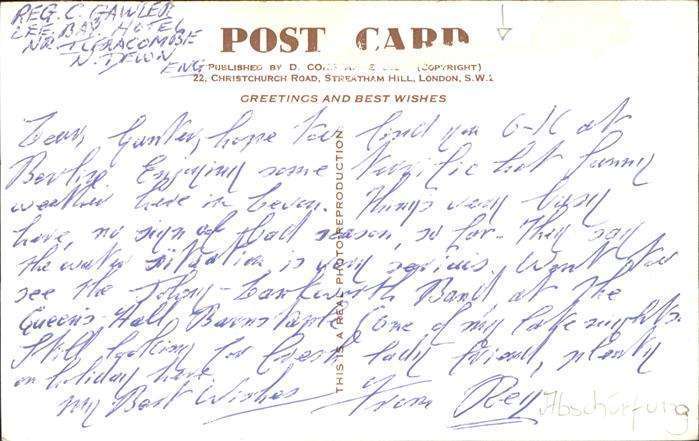 REG. C. GAWLER
LEE BAY HOTEL
NR. ILFRACOMBE
N. DEVON
ENG
POST CARD
PUBLISHED BY D. CON (COPYRIGHT)
22, CHRISTCHURCH ROAD, STREATHAM HILL, LONDON, S.W.2
GREETINGS AND BEST WISHES
THIS IS A REAL PHOTO REPRODUCTION
Dear, Gunter, hope to find you O-K at
Berlin. Enjoying some terrific hot sunny
weather here in Devon. Things very busy
here, no sign of bad season, so far. They say
the water situation is very serious. Went to
see the Johny-Dankworth Band at the
Queens-Hall, Barnstaple one of my late nights.
Still looking for fresh lady friend, plenty
on holiday here.
My Best Wishes
From Reg
Abschürfung